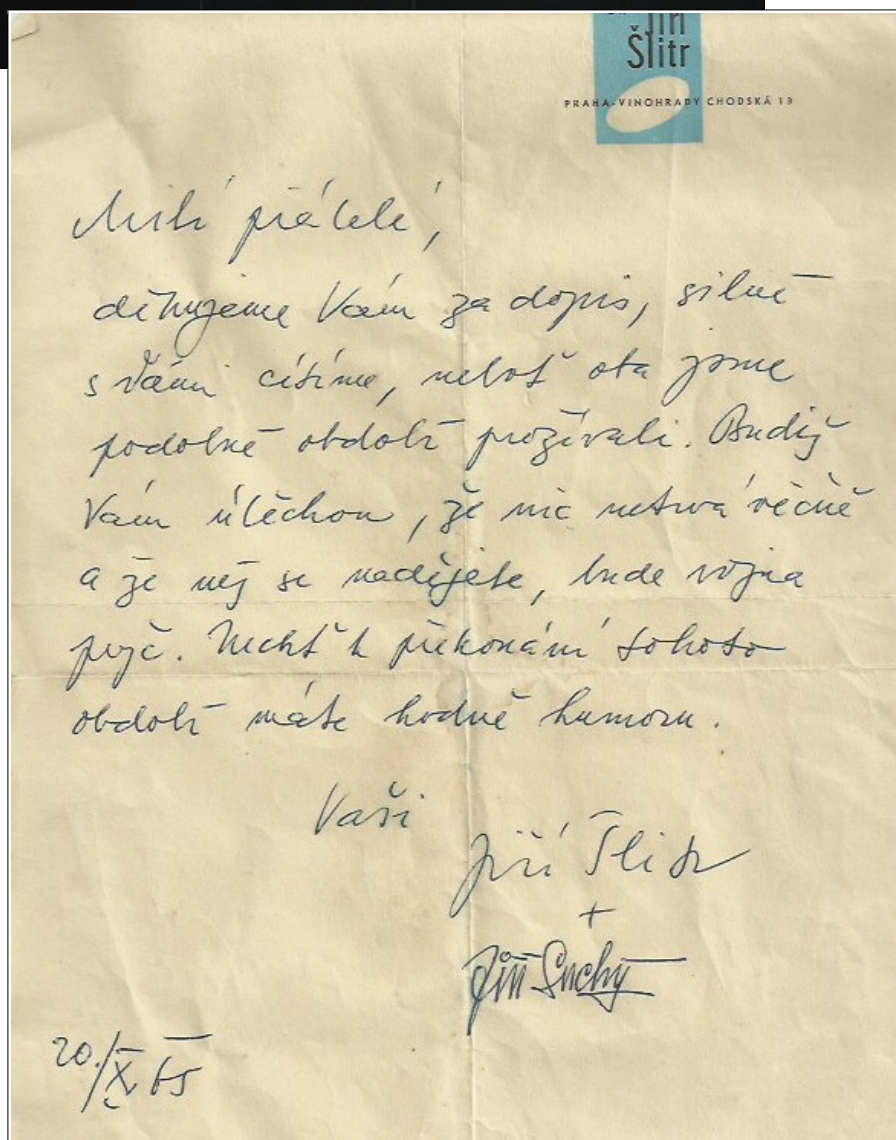 Jiří
Šlitr
PRAHA-VINOHRADY CHODSKÁ 13
Milí přátelé,
děkujeme Vám za dopis, silně
s Vámi cítíme, neboť oba jsme
podobné období prožívali. Budiž
Vám útěchou, že nic netrvá věčně
a že než se nadějete, bude vojna
pryč. Nechť k překonání tohoto
období máte hodně humoru.
Vaši
Jiří Šlitr
+
Jiří Suchý
20./X. 65